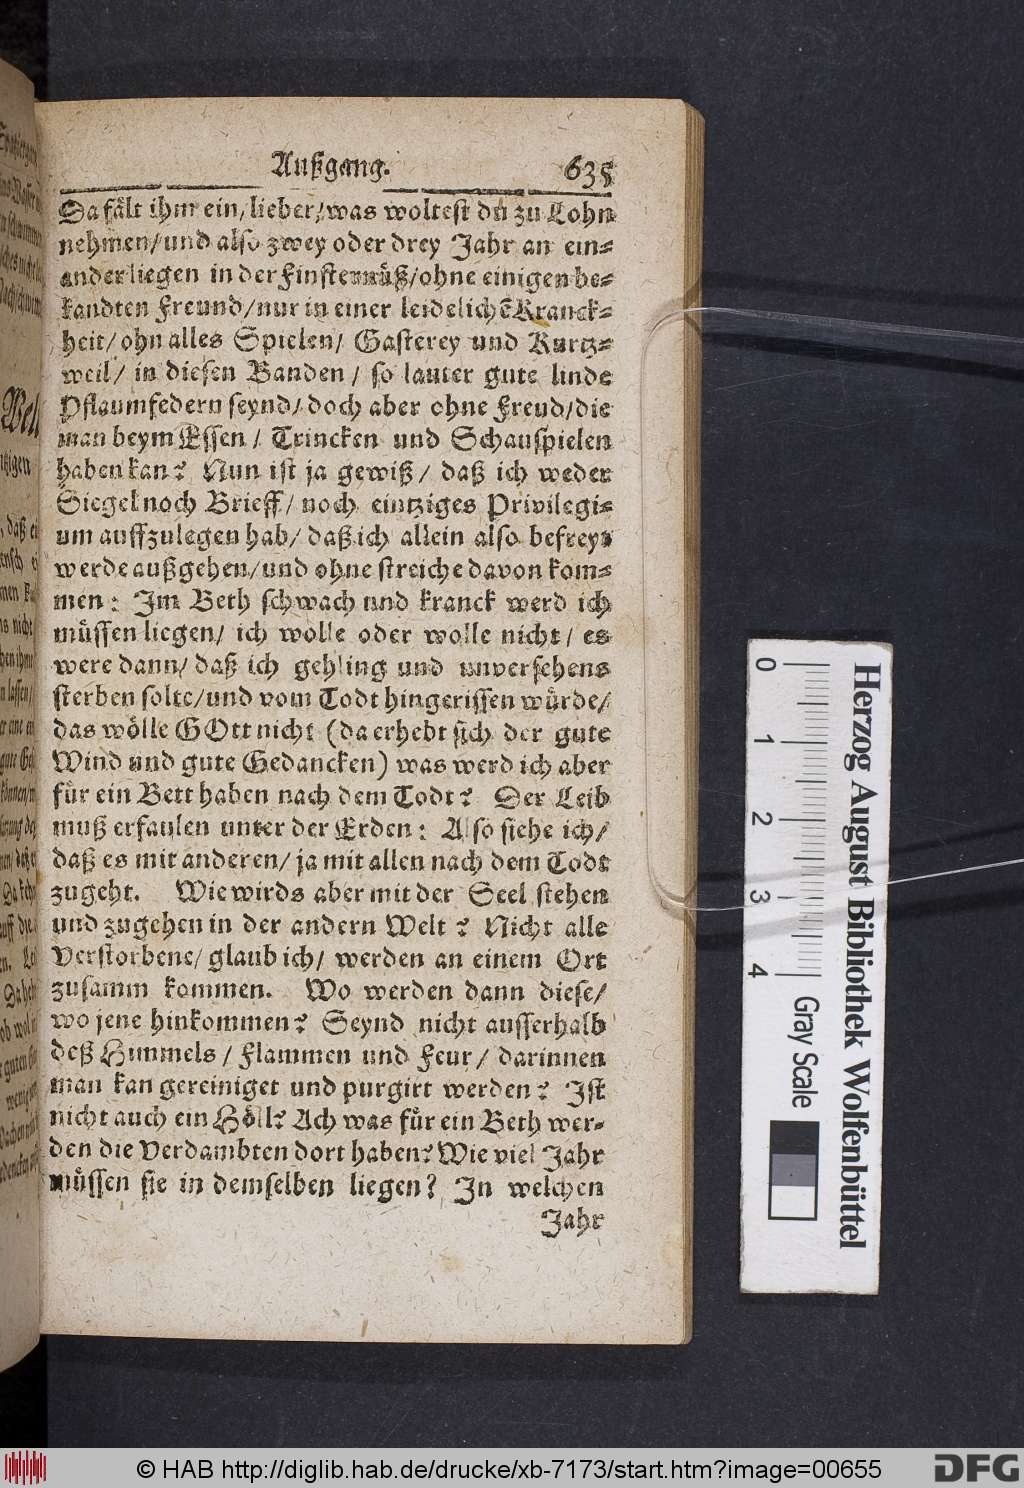 Außgang. 635
Da fält ihm ein, lieber/ was woltest du zu Lohn
nehmen/ und also zwey oder drey Jahr an ein-
ander liegen in der Finsternüß/ ohne einigen be-
kandten Freund/ nur in einer leidelichẽ Kranck-
heit/ ohn alles Spielen/ Gasterey und Kurtz-
weil/ in diesen Banden/ so lauter gute linde
Pflaumfedern seynd/ doch aber ohne Freud/ die
man beym Essen/ Trincken und Schauspielen
haben kan? Nun ist ja gewiß/ daß ich weder
Siegel noch Brieff/ noch eintziges Privilegi-
um auffzulegen hab/ daß ich allein also befreyt
werde außgehen/ und ohne streiche davon kom-
men: Im Beth schwach und kranck werd ich
müssen liegen/ ich wolle oder wolle nicht/ es
were dann/ daß ich gehling und unversehens
sterben solte/ und vom Todt hingerissen würde/
das wölle GOtt nicht (da erhebt sich der gute
Wind und gute Gedancken) was werd ich aber
für ein Bett haben nach dem Todt? Der Leib
muß erfaulen unter der Erden: Also siehe ich/
daß es mit anderen/ ja mit allen nach dem Todt
zugeht. Wie wirds aber mit der Seel stehen
und zugehen in der andern Welt? Nicht alle
Verstorbene/ glaub ich/ werden an einem Ort
zusamm kommen. Wo werden dann diese/
wo jene hinkommen? Seynd nicht ausserhalb
deß Himmels/ Flammen und Feur/ darinnen
man kan gereiniget und purgirt werden? Ist
nicht auch ein Höll? Ach was für ein Beth wer-
den die Verdambten dort haben? Wie viel Jahr
müssen sie in demselben liegen? In welchen
Jahr
Herzog August Bibliothek Wolfenbüttel
0 1 2 3 4
Gray Scale
© HAB http://diglib.hab.de/drucke/xb-7173/start.htm?image=00655
DFG